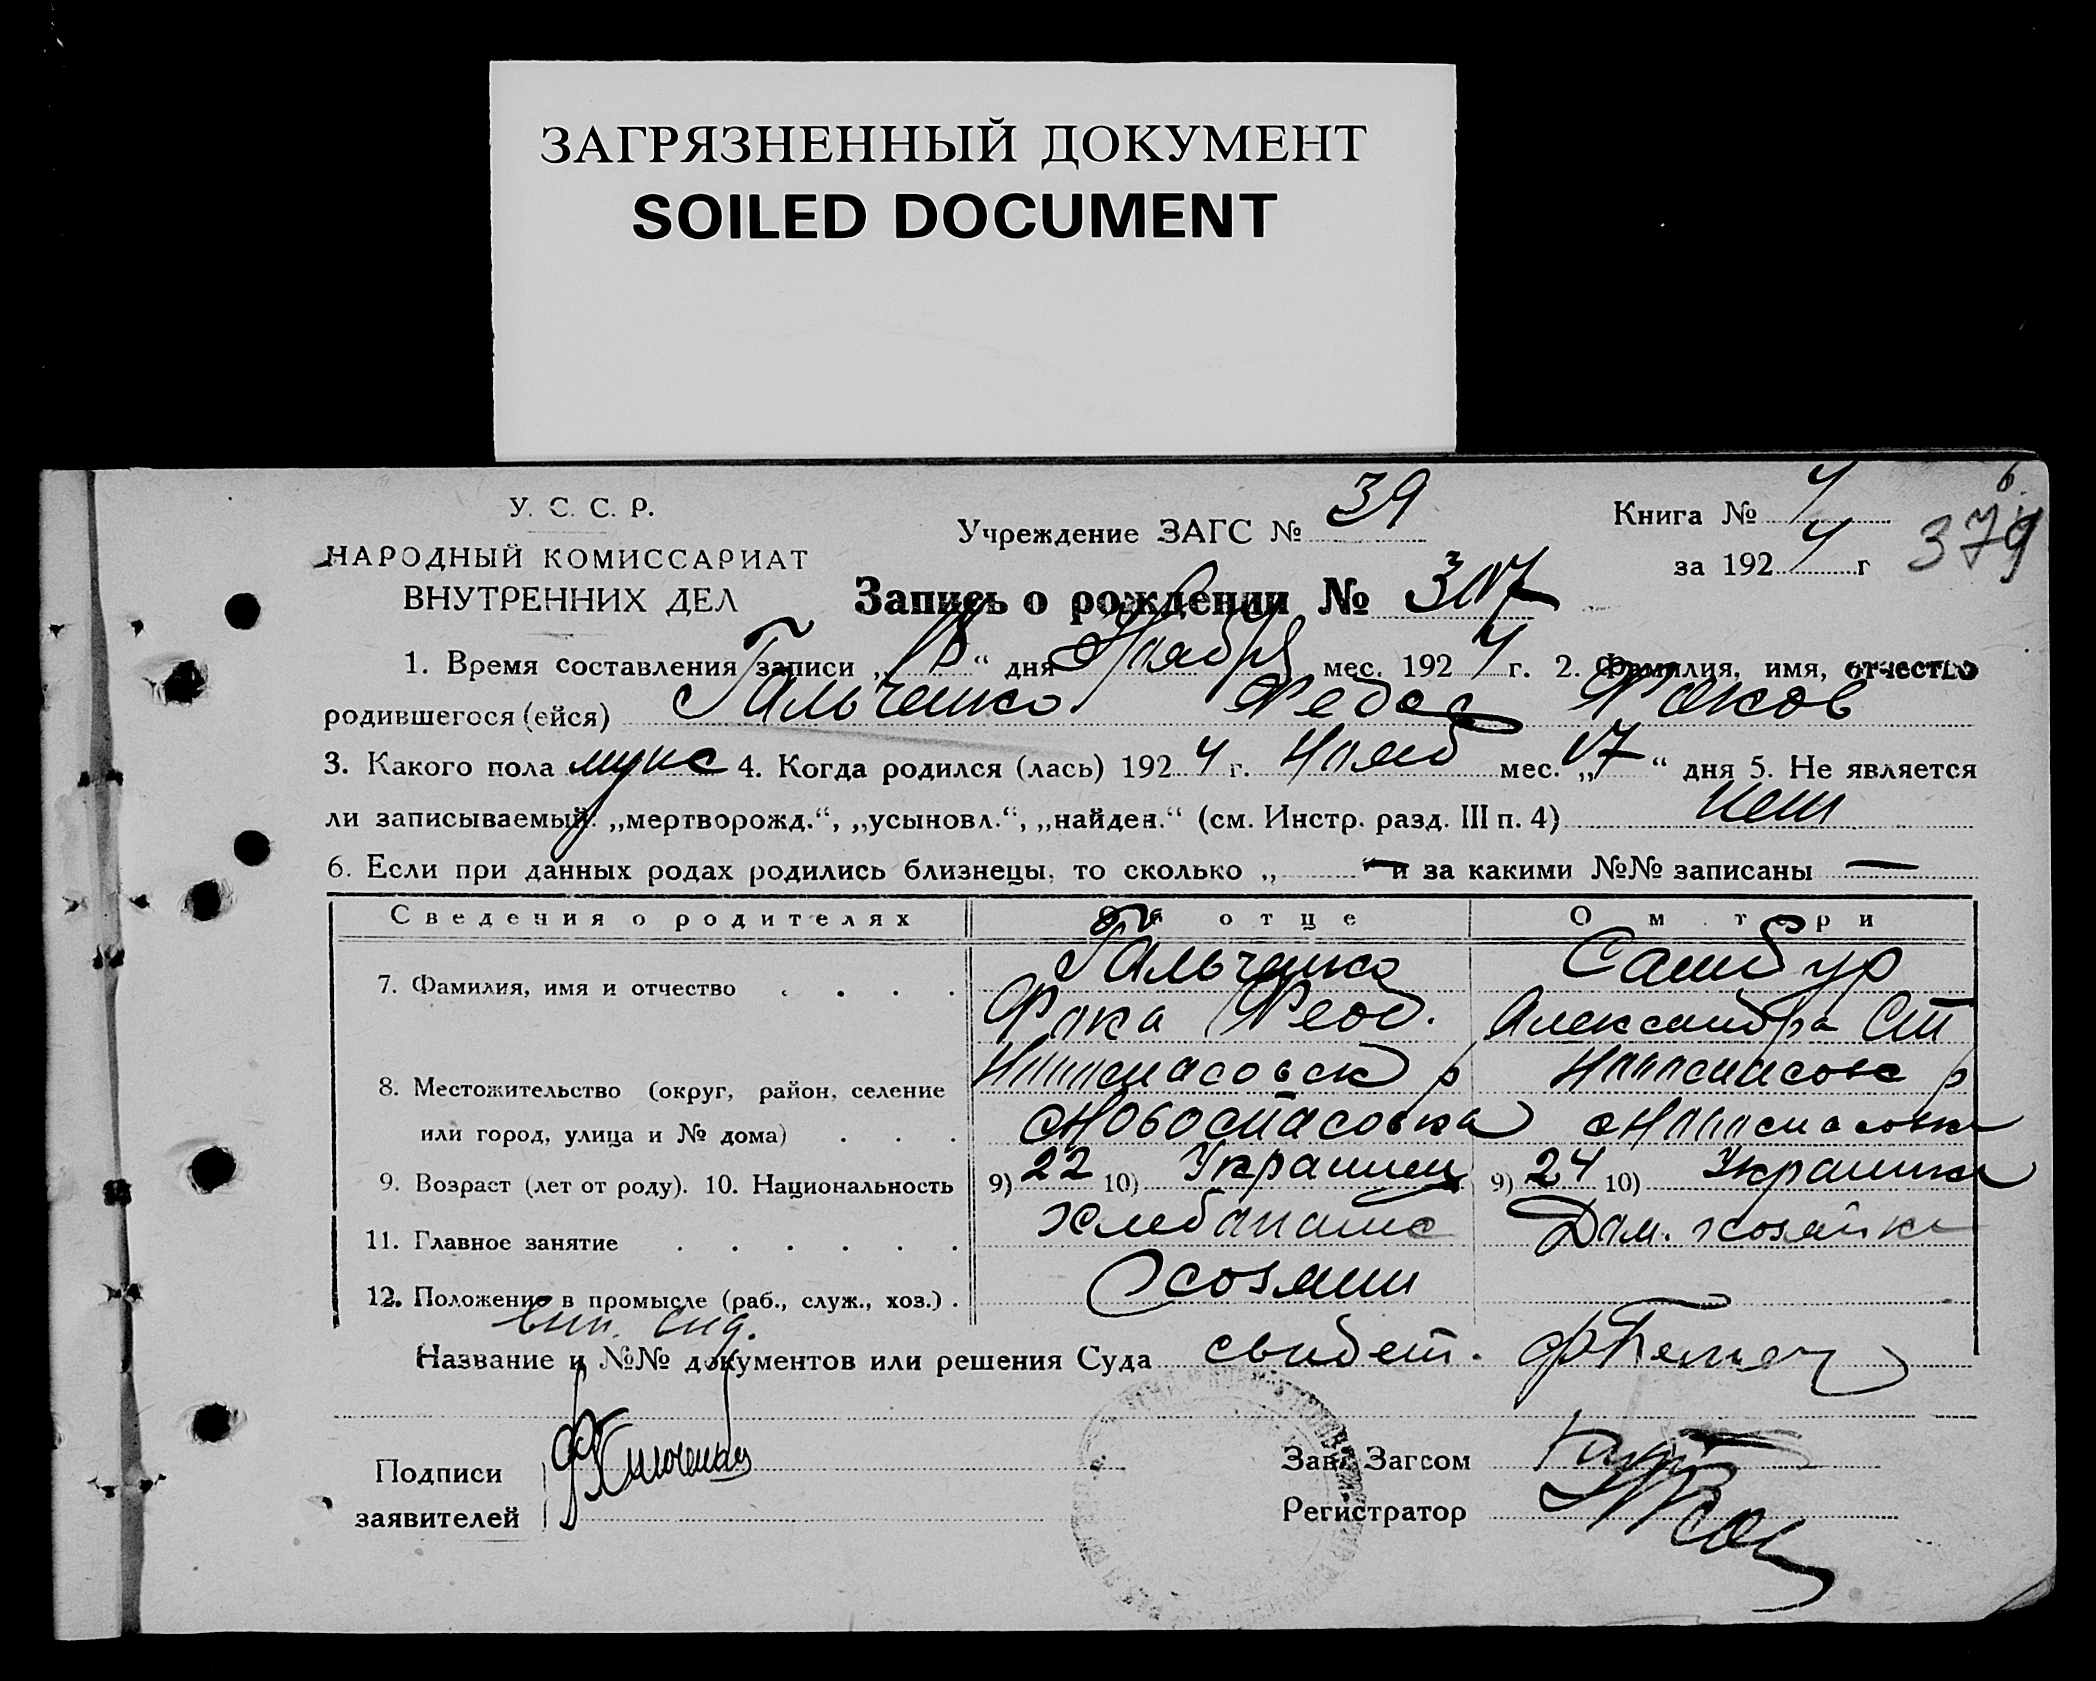 ЗАГРЯЗНЕННЫЙ ДОКУМЕНТ
SOILED DOCUMENT
У. С. С. Р.
НАРОДНЫЙ КОМИССАРИАТ
ВНУТРЕННИХ ДЕЛ
Учреждение ЗАГС № 39
Книга № 4
за 192 4 г
379
Запись о рождении № 307
1. Время составления записи „ “ дня Ноября мес. 192 4 г. 2. Фамилия, имя, отчество
родившегося (ейся) Гальченко Федос Фоков
3. Какого пола муж 4. Когда родился (лась) 192 4 г. Нояб мес. „17“ дня 5. Не является
ли записываемый: „мертворожд.“, „усыновл.“, „найден.“ (см. Инстр. разд. III п. 4) нет
6. Если при данных родах родились близнецы, то сколько „ — “ и за какими №№ записаны —
Сведения о родителях О отце О м тери
7. Фамилия, имя и отчество Гальченко Самбур
Фока Феод. Александра Ст
8. Местожительство (округ, район, селение Новоспасовск р Новоспасовс р
или город, улица и № дома) с Новоспасовка с Новоспасовка
9. Возраст (лет от роду). 10. Национальность 9) 22 10) Украинец 9) 24 10) Украинка
11. Главное занятие Хлебопаш Дом. хозяйка
12. Положение в промысле (раб., служ., хоз.) Хозяин
Название и №№ документов или решения Суда свидет.
Подписи
заявителей
Зав. Загсом
Регистратор